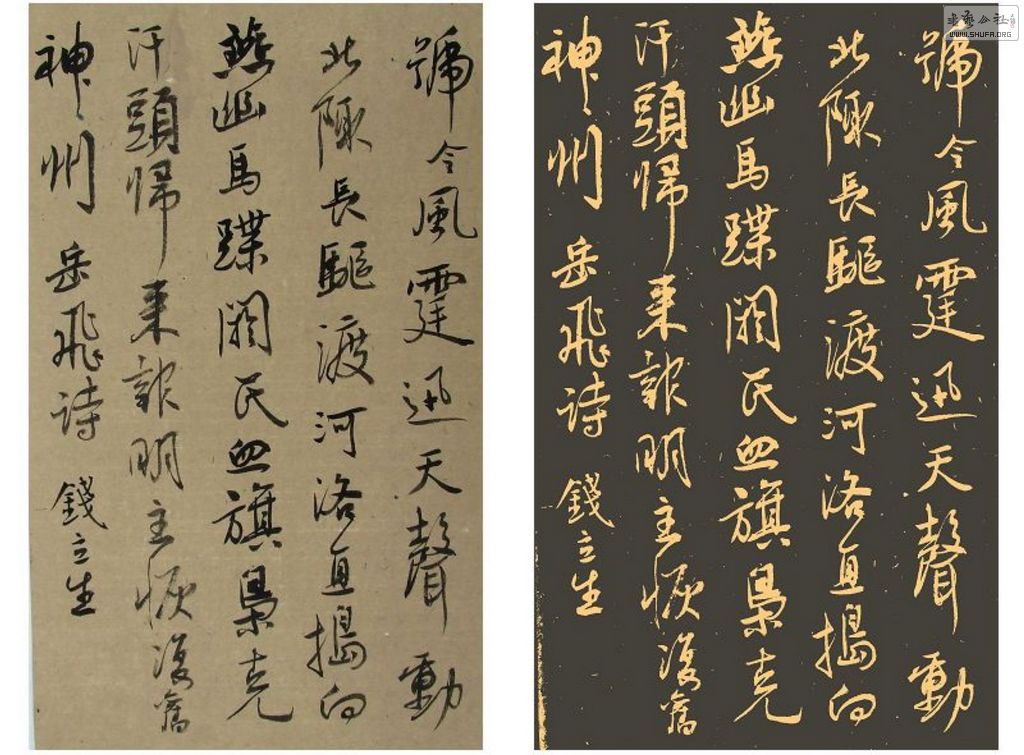 號令風霆迅天聲動
北陬長驅渡河洛直搗向
燕幽馬蹀閼民血旗梟克
汗頭歸来報明主恢復舊
神州 岳飛詩 錢立生
號令風霆迅天聲動
北陬長驅渡河洛直搗向
燕幽馬蹀閼民血旗梟克
汗頭歸来報明主恢復舊
神州 岳飛詩 錢立生
WWW.SHUFA.ORG